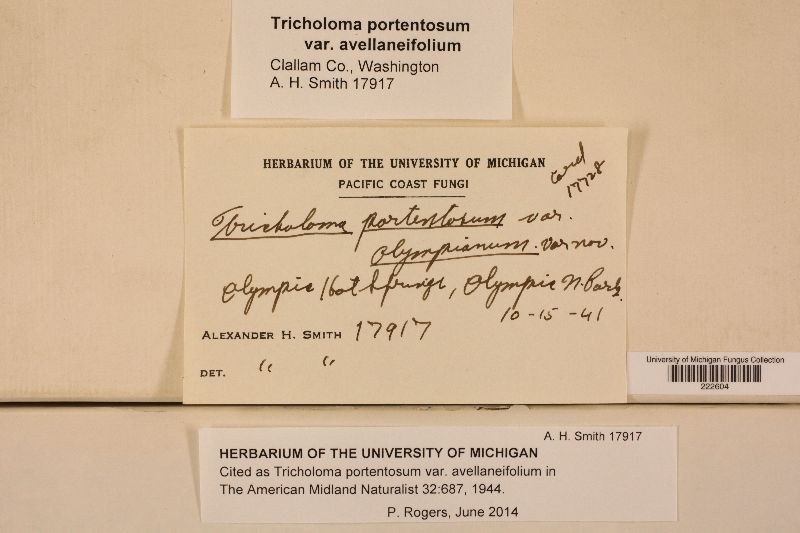 Tricholoma portentosum
var. avellaneifolium
Clallam Co., Washington
A. H. Smith 17917
HERBARIUM OF THE UNIVERSITY OF MICHIGAN
PACIFIC COAST FUNGI
card
17728
Tricholoma portentosum var.
olympianum. var nov.
Olympic Hot Springs, Olympic N. Park.
10-15-41
ALEXANDER H. SMITH 17917
DET. " "
University of Michigan Fungus Collection
222604
A. H. Smith 17917
HERBARIUM OF THE UNIVERSITY OF MICHIGAN
Cited as Tricholoma portentosum var. avellaneifolium in
The American Midland Naturalist 32:687, 1944.
P. Rogers, June 2014